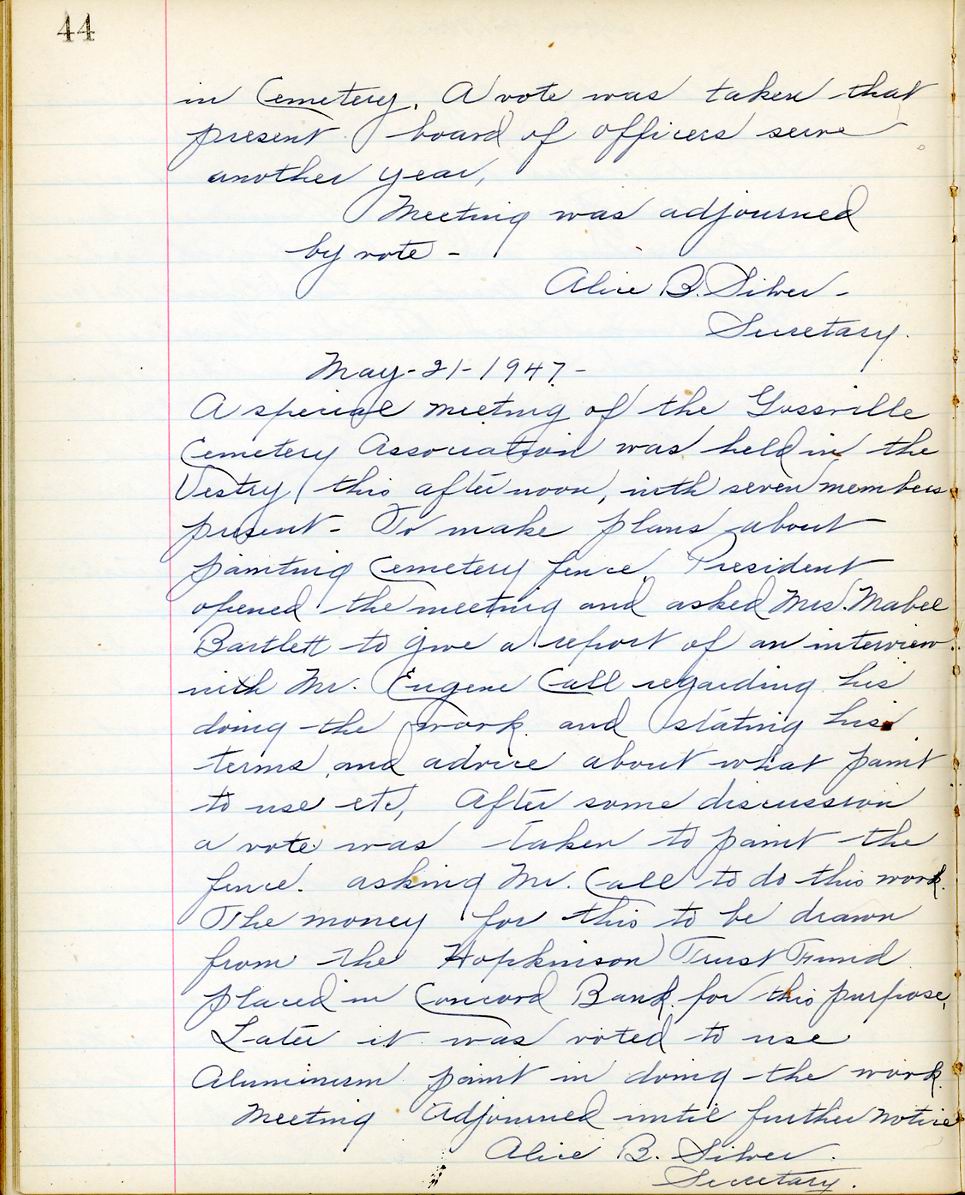 44
in Cemetery. A vote was taken that
present board of officers serve
another year,
Meeting was adjourned
by vote -
Alice B. Silver -
Secretary.
May - 21 - 1947 -
A special meeting of the Gossville
Cemetery Association was held in the
Vestry this afternoon, with seven members
present - To make plans about
painting Cemetery fence. President
opened the meeting and asked Mrs. Mabel
Bartlett to give a report of an interview
with Mr. Eugene Call regarding his
doing the work and stating his
terms, and advice about what paint
to use etc, After some discussion
a vote was taken to paint the
fence. asking Mr. Call to do this work.
The money for this to be drawn
from the Hopkinson Trust Fund
placed in Concord Bank for this purpose,
Later it was voted to use
Aluminum paint in doing the work.
Meeting adjourned until further notice
Alice B. Silver.
Secretary.